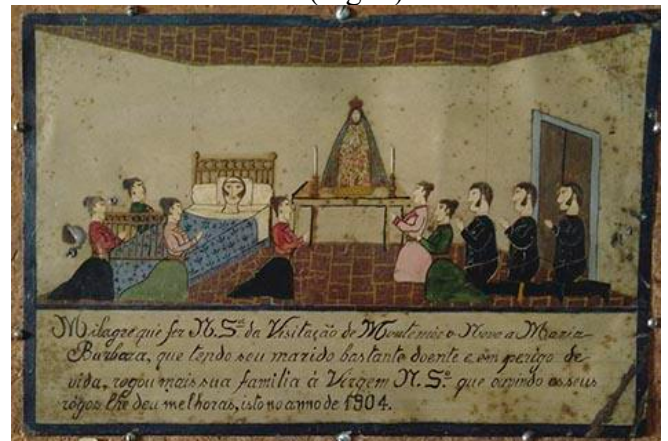 Milagre que fez N. Sª. da Visitação de Montemór o Novo a Maria
Barbara, que tendo seu marido bastante doente e em perigo de
vida, rogou mais sua familia à Virgem N. Sª. que ouvindo os seus
rogos lhe deu melhoras, isto no anno de 1904.